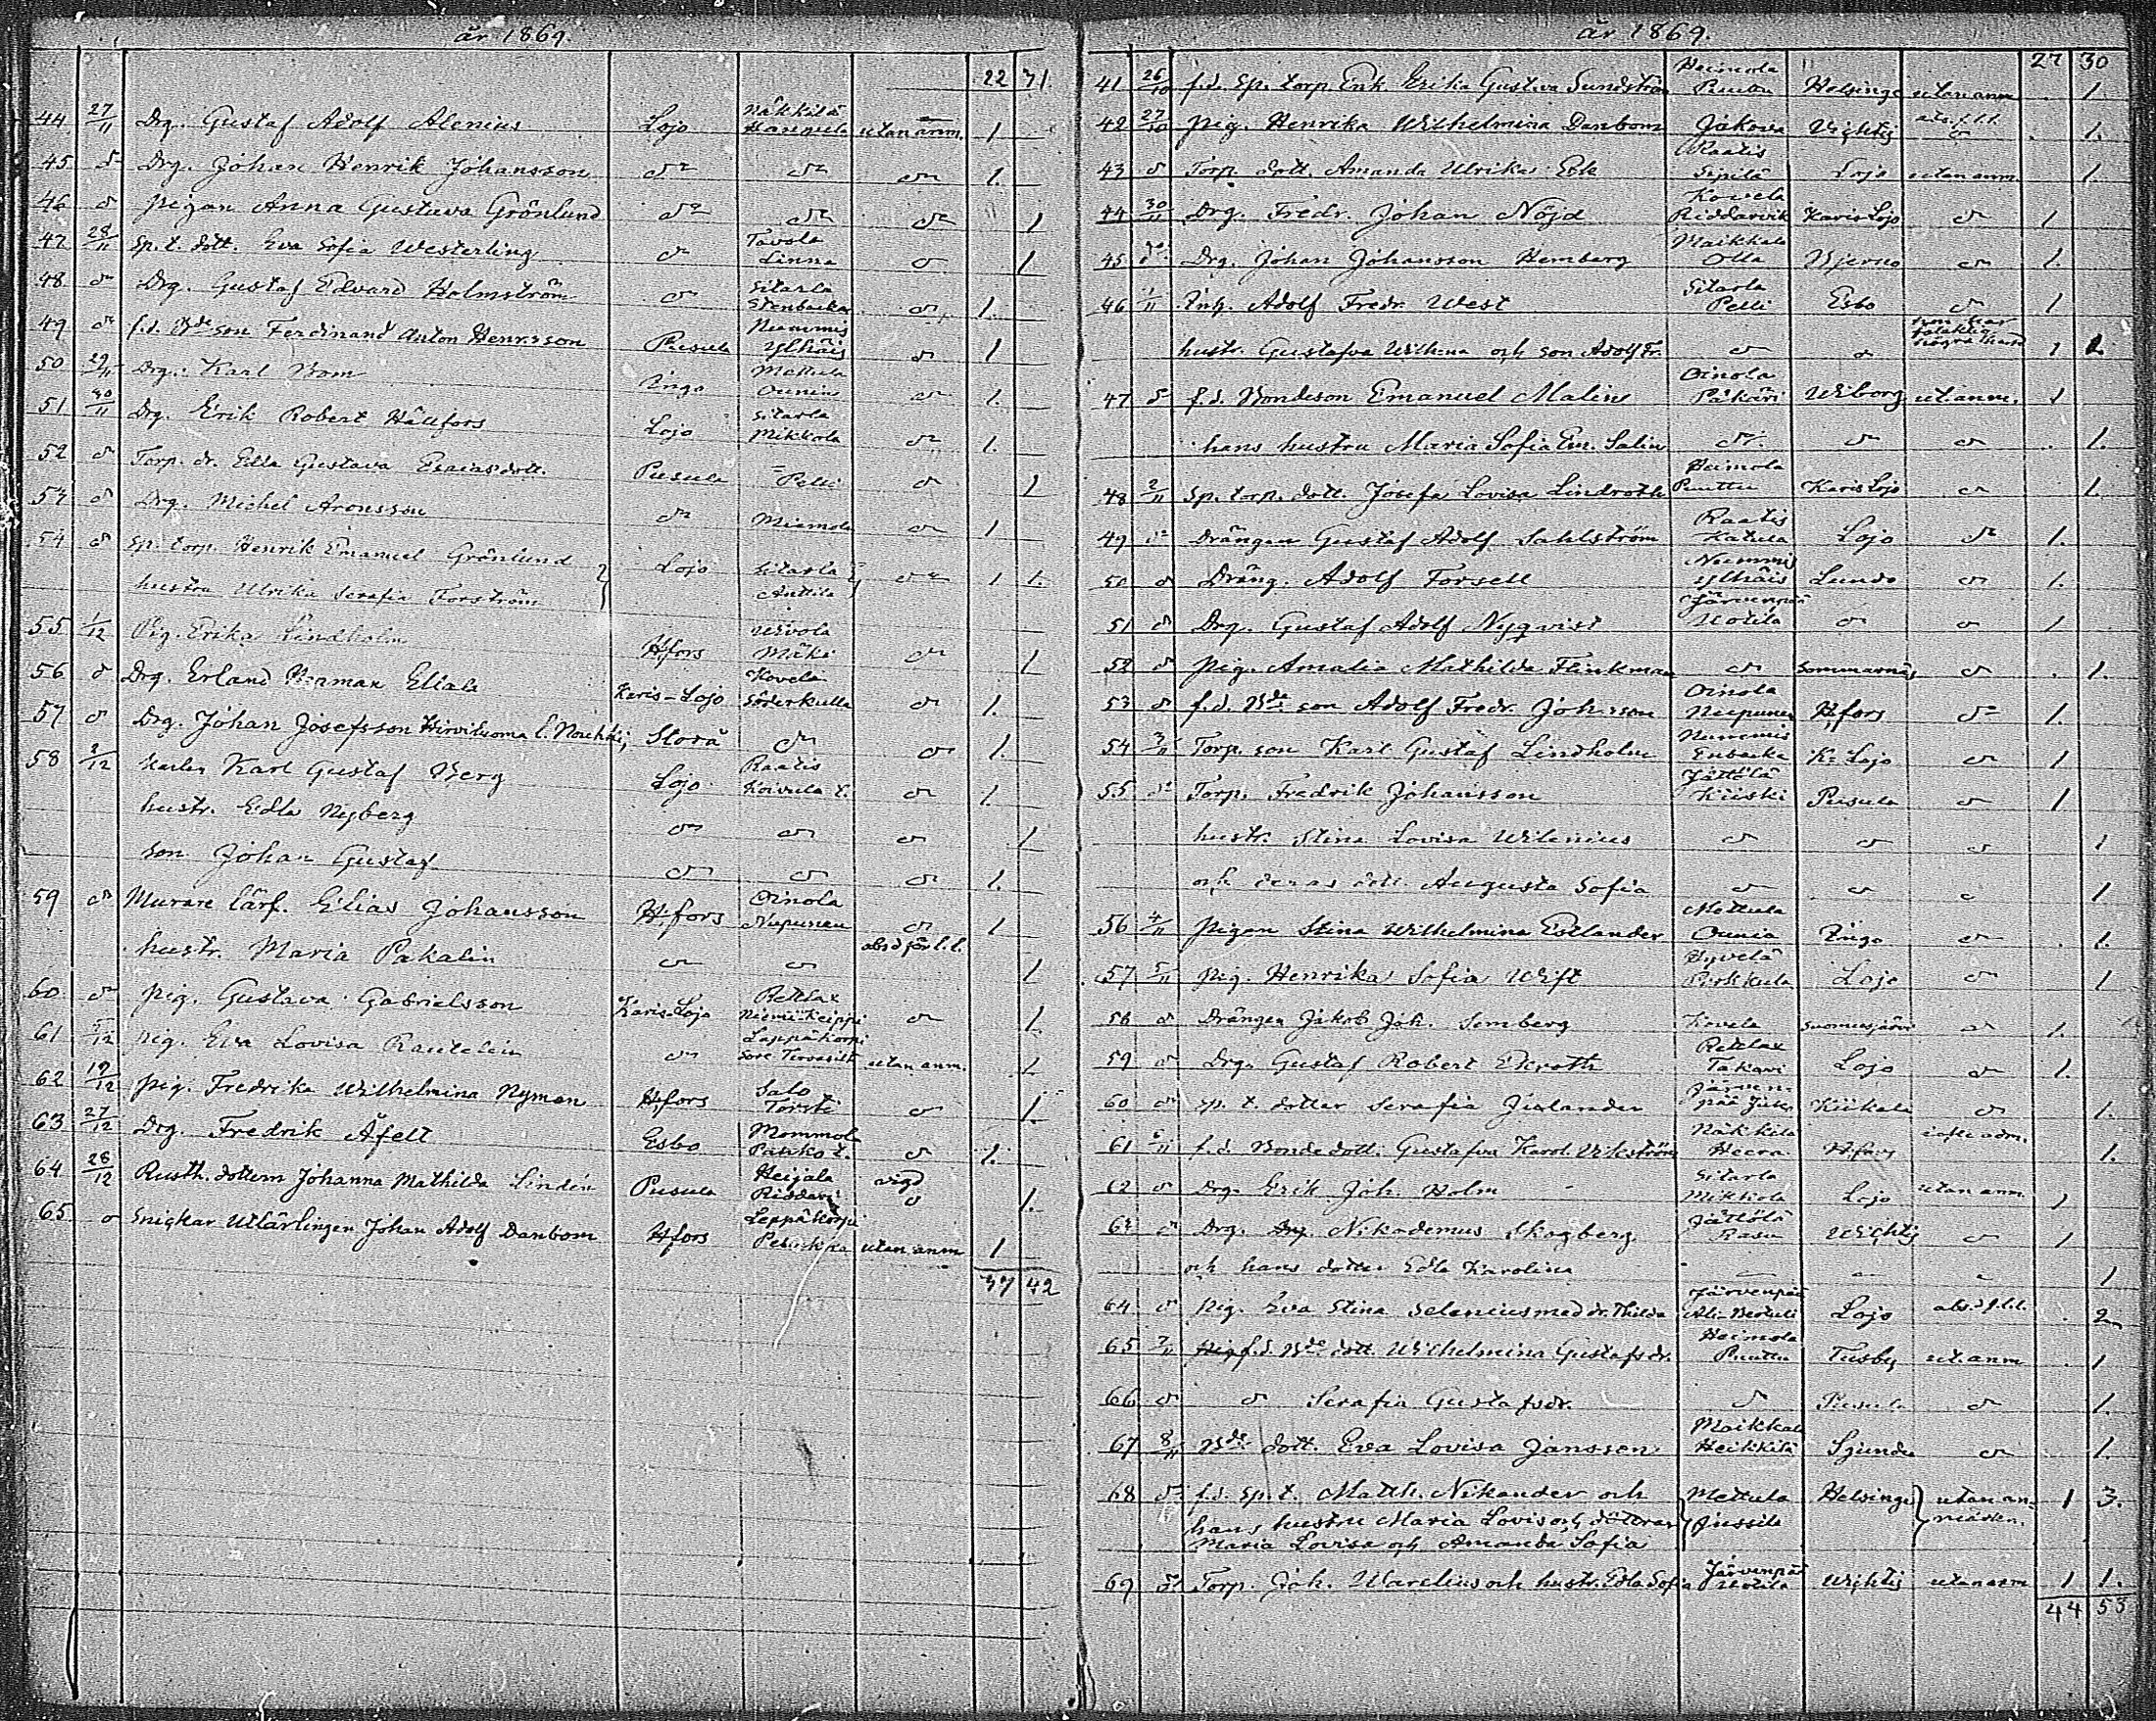 år 1869.
22 31.
44 27/11 Drg. Gustaf Adolf Alenius Lojo Näkkilä Hangvela utan anm. 1
45 d⁰ Drg. Johan Henrik Johansson d⁰ d⁰ d⁰ 1.
46 d⁰ pigan Anna Gustava Grönlund d⁰ d⁰ d⁰ 1
47 28/11 Sp. t. dott. Eva Sofia Westerling d⁰ Tavola Linna d⁰ 1
48 d⁰ Drg. Gustaf Edvard Holmström d⁰ Sitarla Stenbacka d⁰ 1.
49 d⁰ f.d. Bde son Ferdinand Anton Henr:sson Pusula Nummis Ylhäis d⁰ 1
50 29/11 Drg. Karl Bom Ingo Mettula Ounius d⁰ 1.
51 30/11 Drg. Erik Robert Hällfors Lojo Sitarla Mikkola d⁰ 1.
52 d⁰ Torp. dr. Edla Gustava Esaiasdott. Pusula = Pelli d⁰ 1
53 d⁰ Drg. Michel Aronsson d⁰ Miemola d⁰ 1
54 d⁰ Sp. torp. Henrik Emanuel Grönlund
hustru Ulrika Serafia Forström Lojo Sitarla Anttila d⁰ 1 1.
55 1/12 Pig. Erika Lindholm H:fors Wivola Mäki d⁰ 1
56 d⁰ Drg. Erland Eliala Karis-Lojo Kovela Söderkulla d⁰ 1.
57 d⁰ Drg. Johan Josefsson Hirvituoma l. Storå d⁰ d⁰ 1.
58 2/12 Karlen Karl Gustaf Berg Lojo Raatis Koivula t. d⁰ 1.
hustr. Edla Nyberg d⁰ d⁰ d⁰ 1
son Johan Gustaf d⁰ d⁰ d⁰ 1.
59 d⁰ Murare lärl. Elias Johansson H:fors Oinola Nupunen d⁰ 1
hustr. Maria Pakalin d⁰ d⁰ abs d för l.l. 1
60 d⁰ pig. Gustava Gabrielsson Karis-Lojo Retlax Niemi-Keippi d⁰ 1.
61 5/12 pig. Eva Lovisa Rautelin d⁰ Leppäkorpi Sore utan anm. 1
62 19/12 pig. Fredrika Wilhelmina Nyman H:fors Salo Torsti d⁰ 1.
63 27/12 Drg. Fredrik Åfelt Esbo Mommola Pänkö t. d⁰ 1.
64 28/12 Rusth. dottern Johanna Mathilda Lindén Pusula Heijala Riddari vigd d⁰ 1.
65 d⁰ Snickar Utlärlingen Johan Adolf Danbom H:fors Leppäkorpi utan anm 1
37 42
år 1869.
27 30
41 26/10 f.d. Sp. torp. Enk Erika Gustava Sundström Heimola Puuttu Helsinge utan anm 1
42 27/10 pig. Henrika Wilhelmina Danbom Jakova Wichtis 1.
43 d⁰ Torp. dott. Amanda Ulrika Ek Raatis Sepilä Lojo utan anm. 1
44 30/11 Drg. Fredr. Johan Nöjd Kovela Riddarvik Karis Lojo d⁰ 1
45 d⁰ Drg. Johan Johansson Hemberg Maikkala Olla Bjerno d⁰ 1.
46 1/11 Inh. Adolf Fredr. West Sitarla Pelli Esbo d⁰ 1
hustr. Gustafva Wilh:na och son Adolf Fr. d⁰ d⁰ 1 1.
47 d⁰ f.d. Bondeson Emanuel Malin Oinola Pakari Wiborg ut. anm. 1
hans hustru Maria Sofia Em. Salin d⁰ d⁰ d⁰ 1.
48 2/11 Sp. torp. dott. Josefa Lovisa Lindroth Heimola Puuttu Karis Lojo d⁰ 1.
49 d⁰ Drängen Gustaf Adolf Sahlström Raatis Katula Lojo d⁰ 1.
50 d⁰ Dräng. Adolf Forsell Nummis Ylhäis Lundo d⁰ 1.
51 d⁰ Drg. Gustaf Adolf Nyqvist Järvenpää Uotila d⁰ d⁰ 1
52 d⁰ pig. Amalia Mathilda Flinkman d⁰ Sommarnäs d⁰ 1.
53 d⁰ f.d. Bde son Adolf Fredr. Joh:sson Oinola Nupunen H:fors d⁰ 1.
54 3/11 Torp. son Karl Gustaf Lindholm Nummis Enbacka K: Lojo d⁰ 1
55 d⁰ Torp. Fredrik Johansson Jättölä Kiiski Pusula d⁰ 1
hustr. Stina Lovisa Wilenius d⁰ d⁰ d⁰ 1
och deras dott. Augusta Sofia d⁰ d⁰ d⁰ 1
56 4/11 pigan Stina Wilhelmina Estlander Mettula Ounia Ingo d⁰ 1.
57 5/11 pig. Henrika Sofia Wift Hyvelä Pirkkula Lojo d⁰ 1
58 d⁰ Drängen Jakob Joh. Semberg Kovela Suomusjärvi d⁰ 1.
59 d⁰ Drg. Gustaf Robert Ekroth Retlax Takari Lojo d⁰ 1.
60 d⁰ Sp. t. dotter Serafia Järvenpää Kiikala d⁰ 1.
61 6/11 f.d. Bonde dott. Gustafva Karol. Wikström Näkkilä Heera H:fors icke adm. 1.
62 d⁰ Drg. Erik Joh. Holm Sitarla Mikkola Lojo utan anm. 1
63 d⁰ Drg. Nikodemus Skogberg Jättölä Rasu Wichtis d⁰ 1
och hans dotter Edla Karolina 1
64 d⁰ pig. Eva Stina Selenius med dr. Thilda Järvenpää Ali-Bertuli Lojo abs. d f. l.l. 2
65 7/11 f.d. Bde dott. Wilhelmina Gustafsdr. Heimola Puuttu Tusby ut. anm 1
66 d⁰ d⁰ Serafia Gustafsdr. d⁰ Pusula d⁰ 1.
67 8/11 Bde dott. Eva Lovisa Jansson Maikkala Heikkilä Sjundeå d⁰ 1.
68 d⁰ f.d. Sp. t. Matth. Nikander och Mettula Helsinge utan an= 1 3.
hans hustru Maria Lovis och döttrar Jussila märkn.
Maria Lovisa och Amanda Sofia
69 d⁰ Torp. Joh. Warelius och hustr. Edla Sofia Järvenpää Uotila Wichtis utan anm 1 1.
44 53